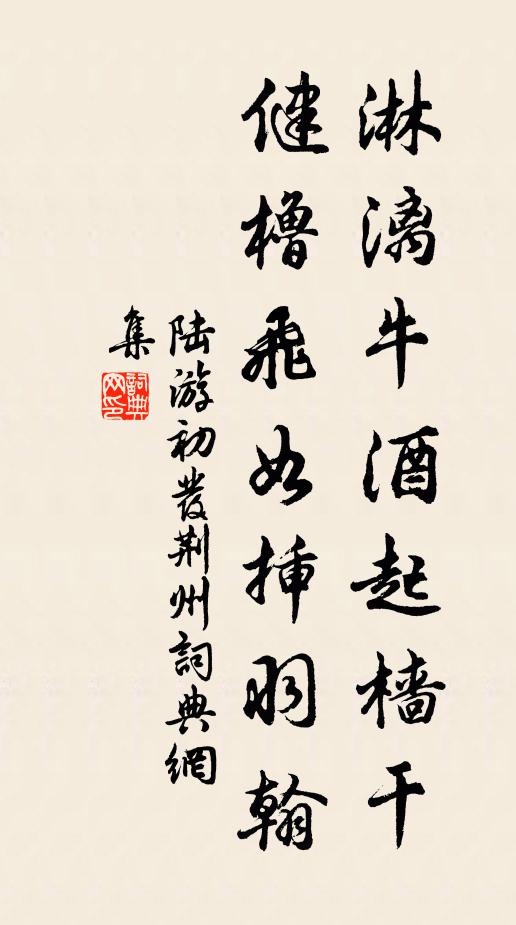 淋漓牛酒起樯干
健橹飛如插羽翰
陆游初發荆州詞典網
集
詞典网印